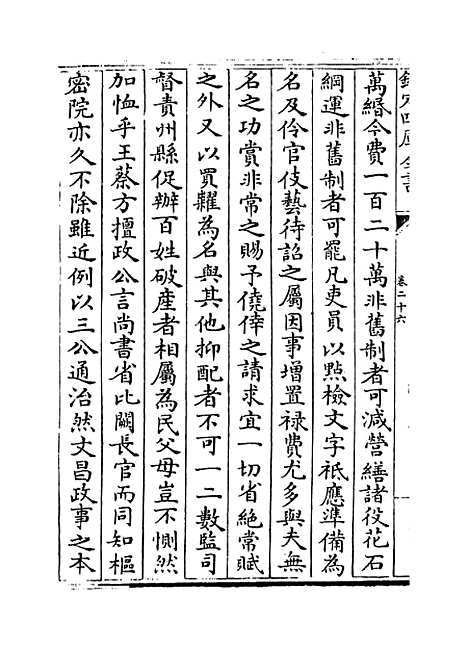 欽定四庫全書
卷二十六
萬緡今費一百二十萬非舊制者可減營繕諸役花石
綱運非舊制者可罷凡吏員以點檢文字祗應準備為
名及伶官伎藝待詔之屬因事增置祿費尤多與夫無
名之功賞非常之賜予僥倖之請求宜一切省絶常賦
之外又以買糴為名與其他抑配者不可一二數監司
督責州縣促辦百姓破産者相屬為民父母豈不惻然
加恤乎王蔡方擅政公言尚書省比闕長官而同知樞
密院亦久不除雖近例以三公通治然文昌政事之本